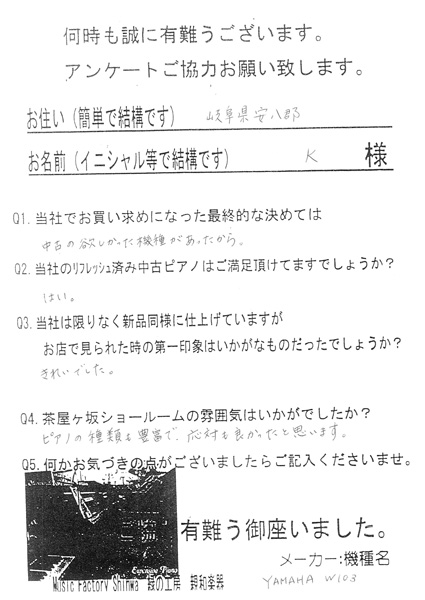 何時も誠に有難うございます。
アンケートご協力お願い致します。
お住い（簡単で結構です） 岐阜県安八郡
お名前（イニシャル等で結構です） K 様
Q1. 当社でお買い求めになった最終的な決めては
中古の欲しかった機種があったから。
Q2. 当社のﾘﾌﾚｯｼｭ済み中古ピアノはご満足頂けてますでしょうか？
はい。
Q3. 当社は限りなく新品同様に仕上げていますが
お店で見られた時の第一印象はいかがなものだったでしょうか？
きれいでした。
Q4. 茶屋ヶ坂ショールームの雰囲気はいかがでしたか？
ピアノの種類も豊富で、応対も良かったと思います。
Q5. 何かお気づきの点がございましたらご記入くださいませ。
有難う御座いました。
Expensive Piano
メーカー:機種名
Music Factory Shinwa 親和楽器
YAMAHA W103